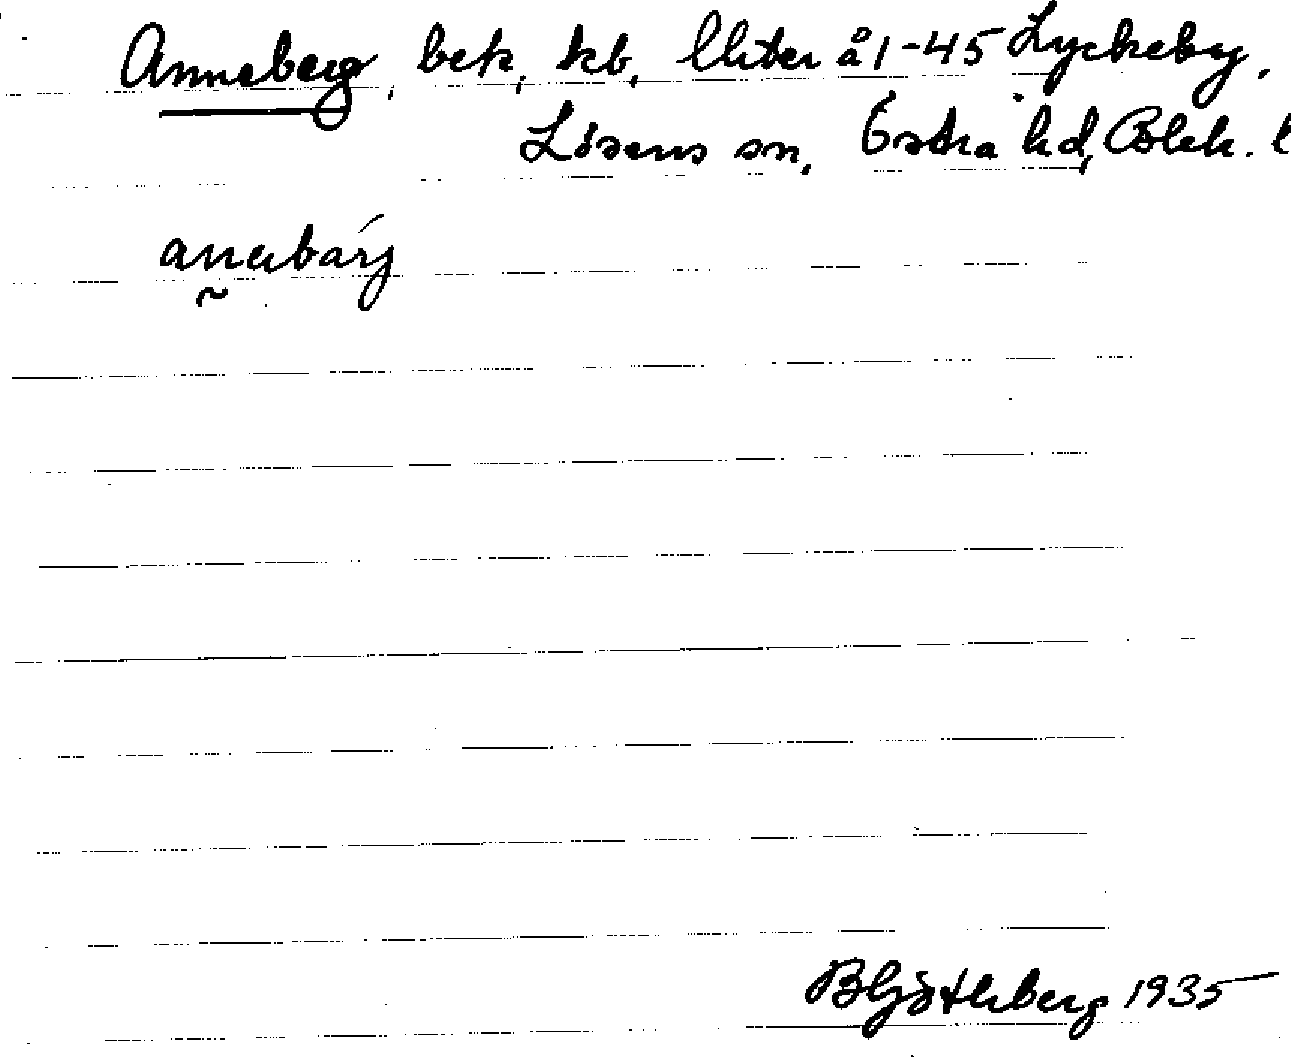 Anneberg, bek, kb, Uliter å 1-45 Lyckeby,
Lösens sn, Östra hd, Blek. l
anabärj
BGötleberg 1935